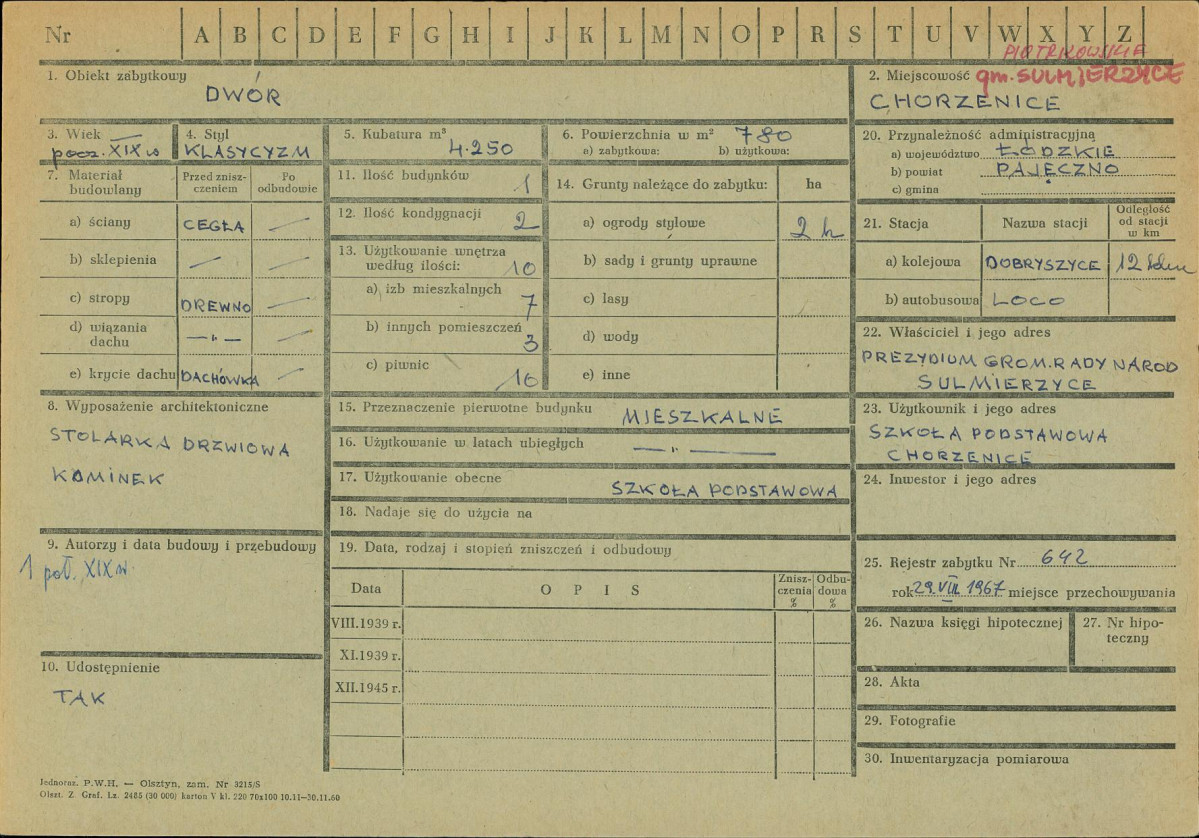 Nr A B C D E F G H I J K L M N O P R S T U V W X Y Z
PIOTRKOWSKIE
1. Obiekt zabytkowy
DWÓR
2. Miejscowość gm. SULMIERZYCE
CHORZENICE
3. Wiek
pocz. XIX w
4. Styl
KLASYCYZM
5. Kubatura m³
4.250
6. Powierzchnia w m² 780
a) zabytkowa: b) użytkowa:
7. Materiał budowlany
Przed zniszczeniem
Po odbudowie
a) ściany CEGŁA —
b) sklepienia — —
c) stropy DREWNO —
d) wiązania dachu —„— —
e) krycie dachu DACHÓWKA —
8. Wyposażenie architektoniczne
STOLARKA DRZWIOWA
KOMINEK
9. Autorzy i data budowy i przebudowy
1 poł. XIX w.
10. Udostępnienie
TAK
11. Ilość budynków 1
12. Ilość kondygnacji 2
13. Użytkowanie wnętrza
według ilości: 10
a) izb mieszkalnych
7
b) innych pomieszczeń
3
c) piwnic
10
14. Grunty należące do zabytku: ha
a) ogrody stylowe 2 h
b) sady i grunty uprawne
c) lasy
d) wody
e) inne
15. Przeznaczenie pierwotne budynku MIESZKALNE
16. Użytkowanie w latach ubiegłych —„—
17. Użytkowanie obecne SZKOŁA PODSTAWOWA
18. Nadaje się do użycia na
19. Data, rodzaj i stopień zniszczeń i odbudowy
Data OPIS Zniszczenia % Odbudowa %
VIII.1939 r.
XI.1939 r.
XII.1945 r.
20. Przynależność administracyjna
a) województwo ŁÓDZKIE
b) powiat PAJĘCZNO
c) gmina
21. Stacja Nazwa stacji Odległość od stacji w km
a) kolejowa DOBRYSZYCE 12 klm
b) autobusowa LOCO
22. Właściciel i jego adres
PREZYDIUM GROM. RADY NAROD
SULMIERZYCE
23. Użytkownik i jego adres
SZKOŁA PODSTAWOWA
CHORZENICE
24. Inwestor i jego adres
25. Rejestr zabytku Nr 642
rok 29.VIII.1967 miejsce przechowywania
26. Nazwa księgi hipotecznej
27. Nr hipoteczny
28. Akta
29. Fotografie
30. Inwentaryzacja pomiarowa
Jednoraz. P.W.H. — Olsztyn, zam. Nr 3215/S
Olszt. Z. Graf. Lz. 2485 (30 000) karton V kl. 220 70x100 10.11—30.11.60